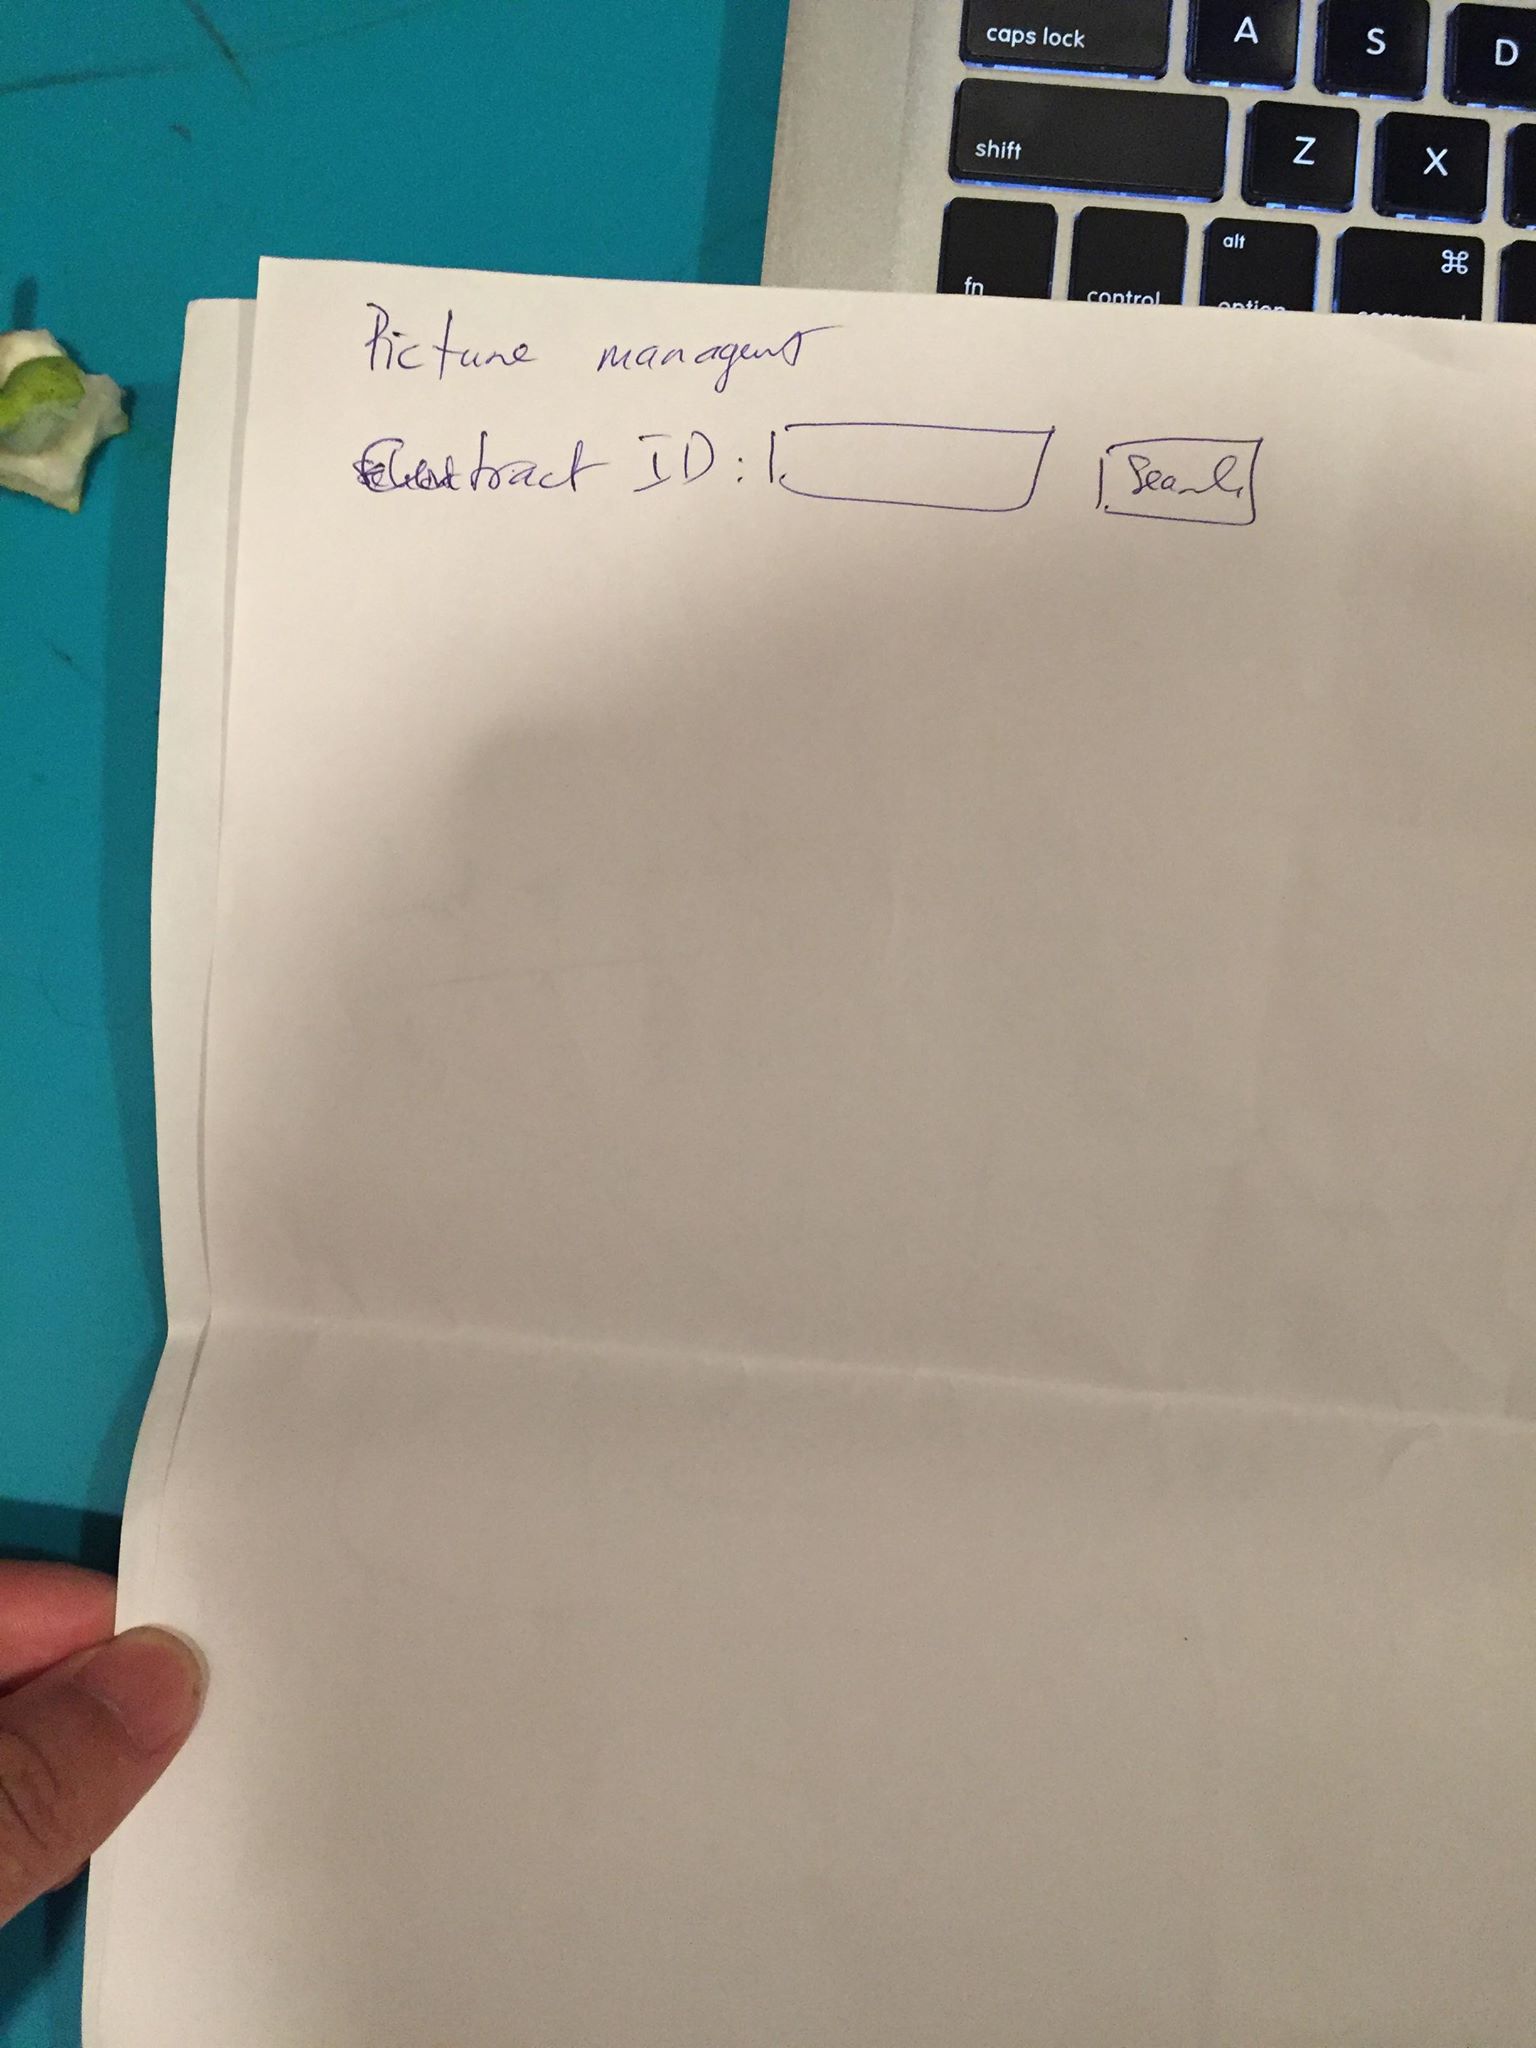 caps lock A S D
shift Z X
fn control alt option ⌘
Picture managent
Contract ID:
Search